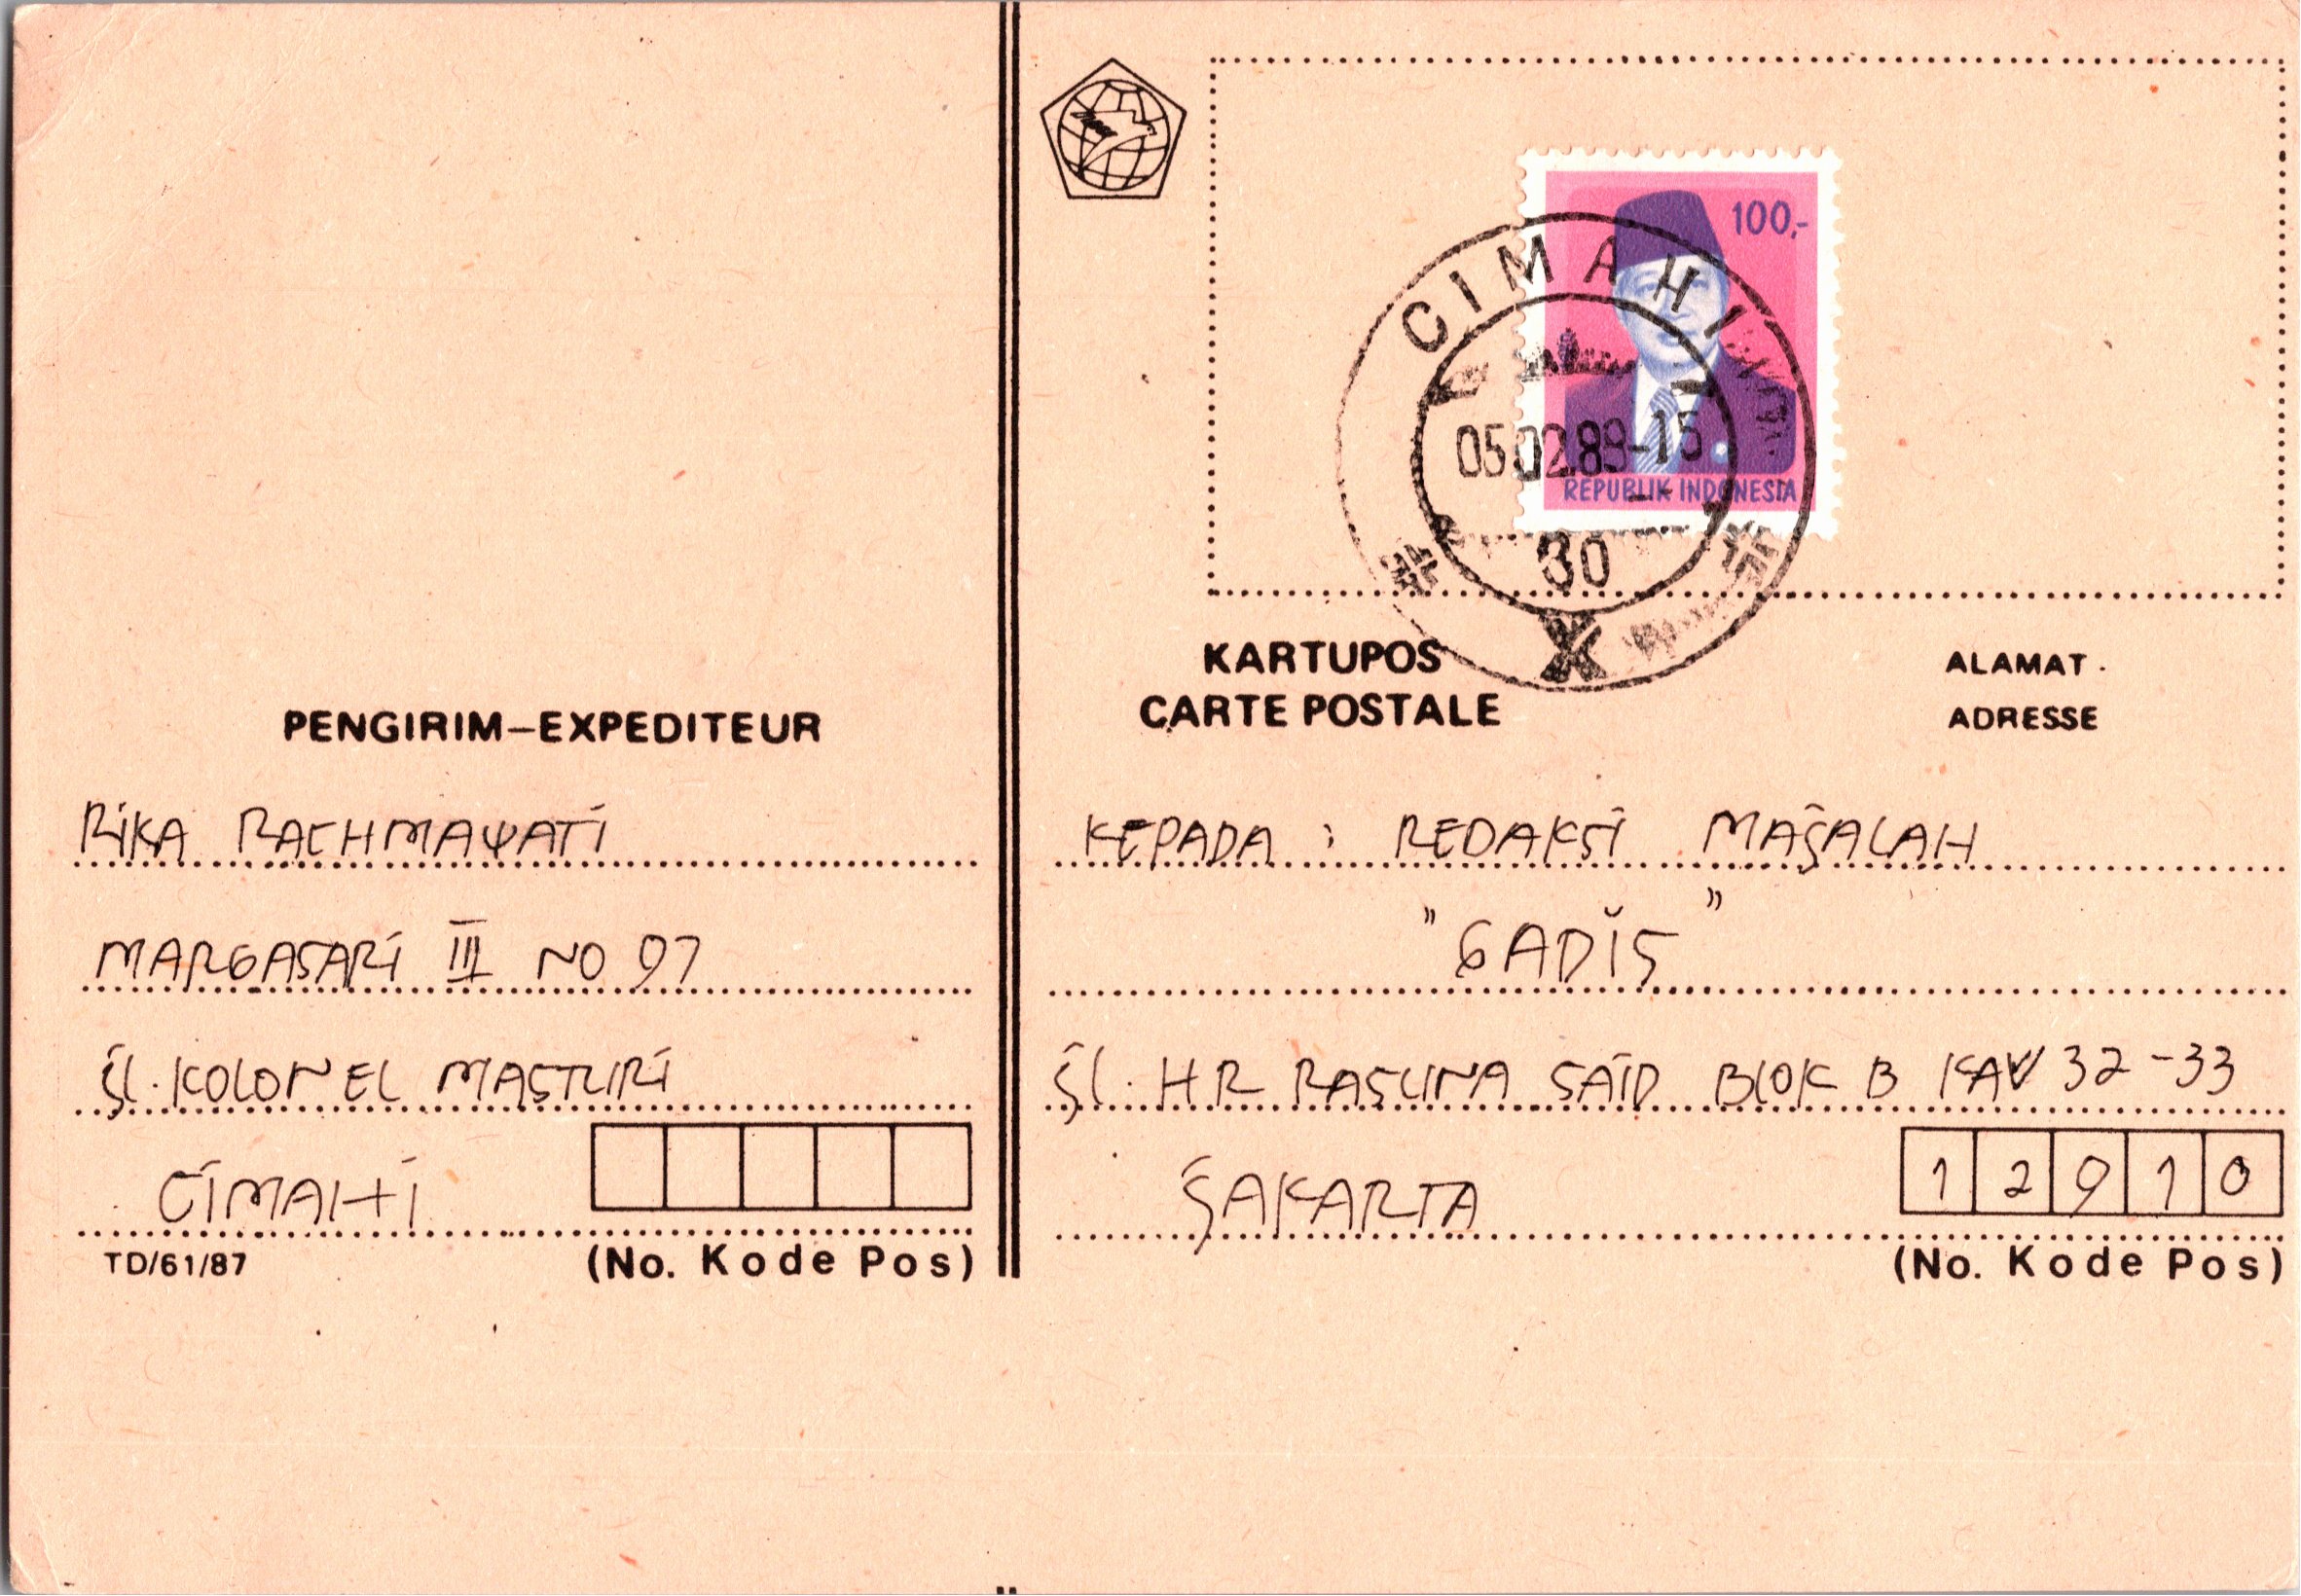 100,-
CIMAHI
05.02.89-15
REPUBLIK INDONESIA
30
KARTUPOS
CARTE POSTALE
ALAMAT
ADRESSE
PENGIRIM–EXPEDITEUR
RIKA RACHMAWATI
MARGASARI III NO 97
JL. KOLONEL MASTURI
CIMAHI
TD/61/87
(No. Kode Pos)
KEPADA : REDAKSI MAJALAH
"GADIS"
JL. HR RASUNA SAID BLOK B KAV 32-33
JAKARTA
12910
(No. Kode Pos)